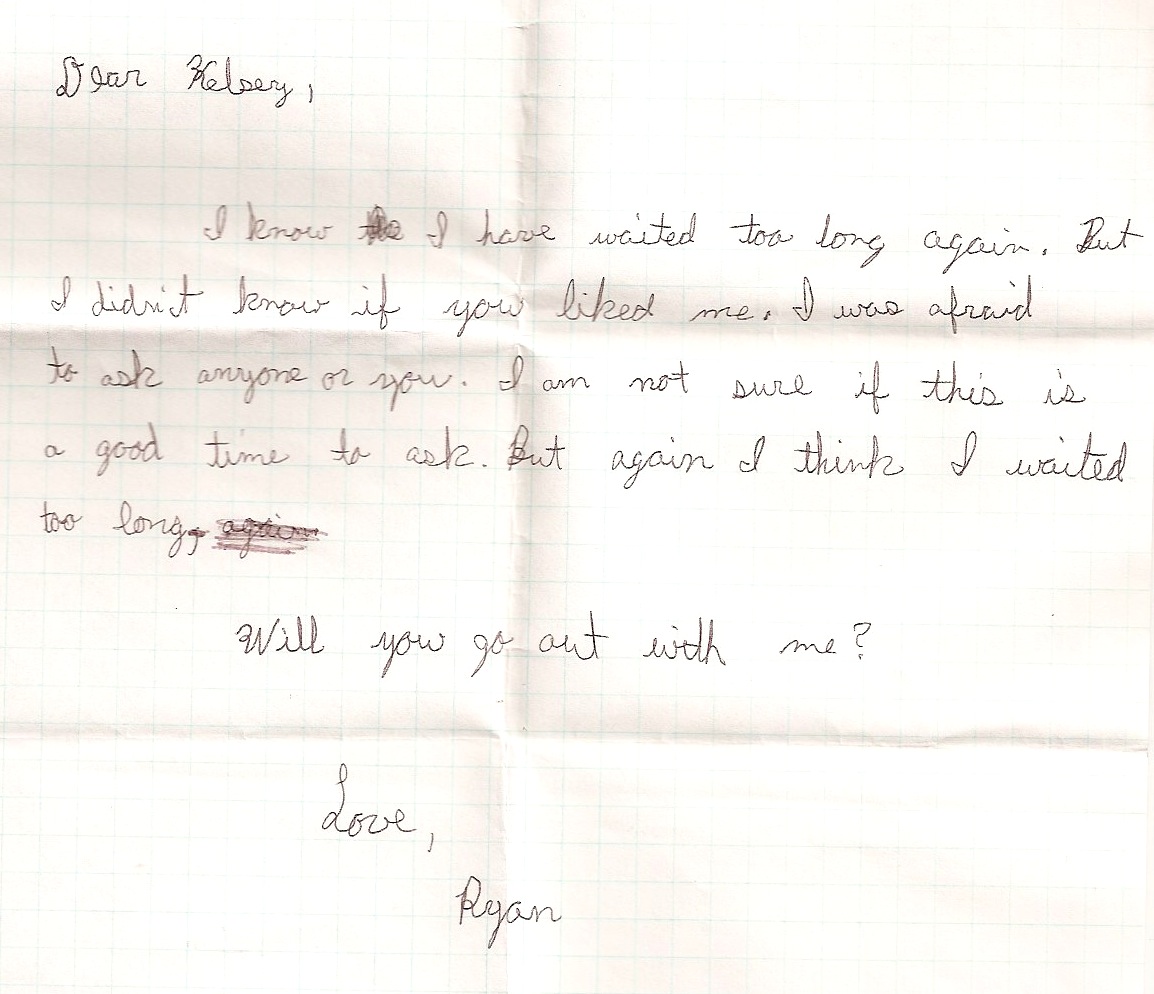 Dear Kelsey,
I know I have waited too long again. But
I didn't know if you liked me. I was afraid
to ask anyone or you. I am not sure if this is
a good time to ask. But again I think I waited
too long,
Will you go out with me?
Love,
Ryan